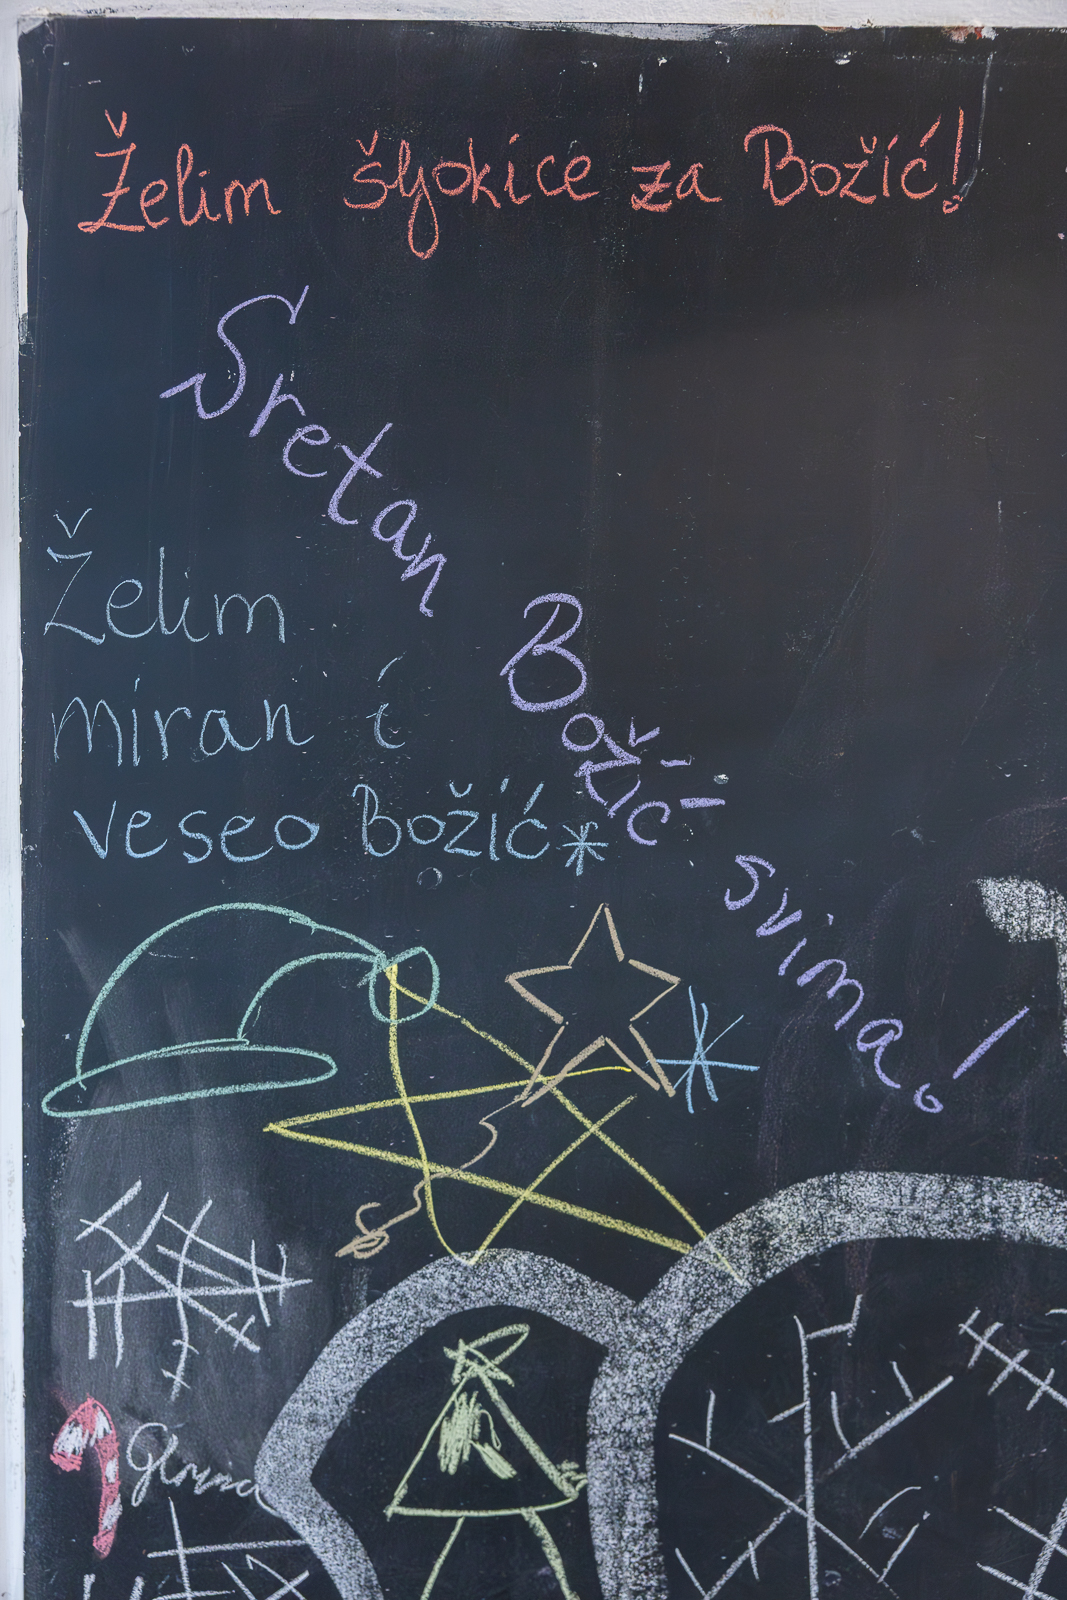 Želim šljokice za Božić!
Sretan Božić svima!
Želim
miran i
veseo Božić*